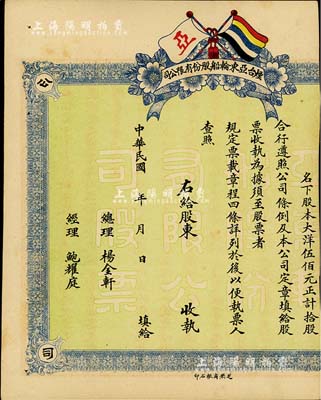 上海陽明拍賣
亞
司公限有份股船輪東亞台煙
名下股本大洋伍佰元正計拾股
合行遵照公司條例及本公司定章填給股
票收執為據須至股票者
規定票載章程四條詳列於後以便執票人
查照
右給股東 收執
中華民國 年 月 日 填給
總理 楊金軒
經理 鮑耀庭
公
司